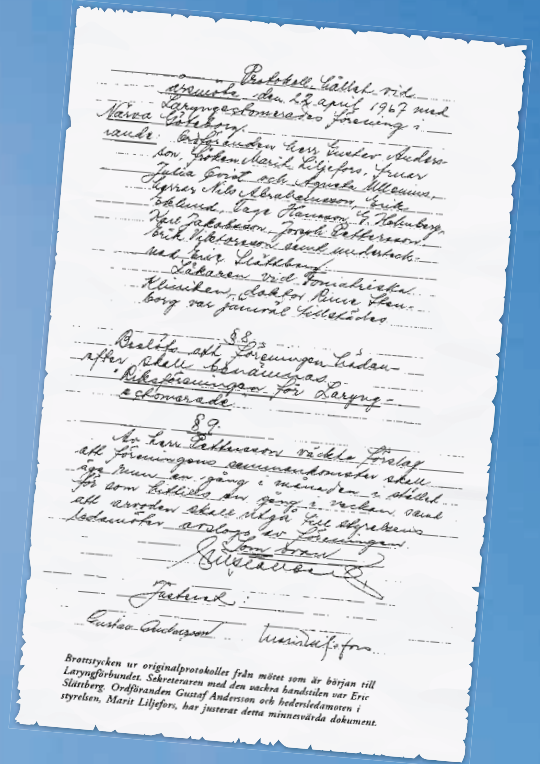 Protokoll hållet vid
årsmöte den 22 april 1967 med
Laryngectomerades förening i
Göteborg.
Närva
rande: Ordföranden herr Gustav Anders-
son, fröken Marit Liljefors, fruar
Julia Qvist och Agneta
herrar Nils Abrahamsson, Erik
Eklund, Tage Hansson, G. Holmberg,
Karl Jakobsson, Joseph Pettersson
Erik Viktorsson samt underteck-
nad Eric Slättberg.
Läkaren vid Foniatriska
Kliniken, doktor Rune Sten-
borg var jämväl tillstädes
§ 8.
Beslöts att föreningen hädan-
efter skall benämnas
"Riksföreningen för Laryng-
ectomerade"
§ 9.
Av herr Pettersson väckta förslag
att föreningens sammankomster skall
äga rum en gång i månaden i stället
för som hittills en gång i veckan samt
att arvoden skall utgå till styrelsens
ledamöter avslogs av föreningen
Som ovan
Justerat:
Gustav Andersson Marit Liljefors
Brottstycken ur originalprotokollet från mötet som är början till
Laryngförbundet. Sekreteraren med den vackra handstilen var Eric
Slättberg. Ordföranden Gustaf Andersson och hedersledamoten i
styrelsen, Marit Liljefors, har justerat detta minnesvärda dokument.